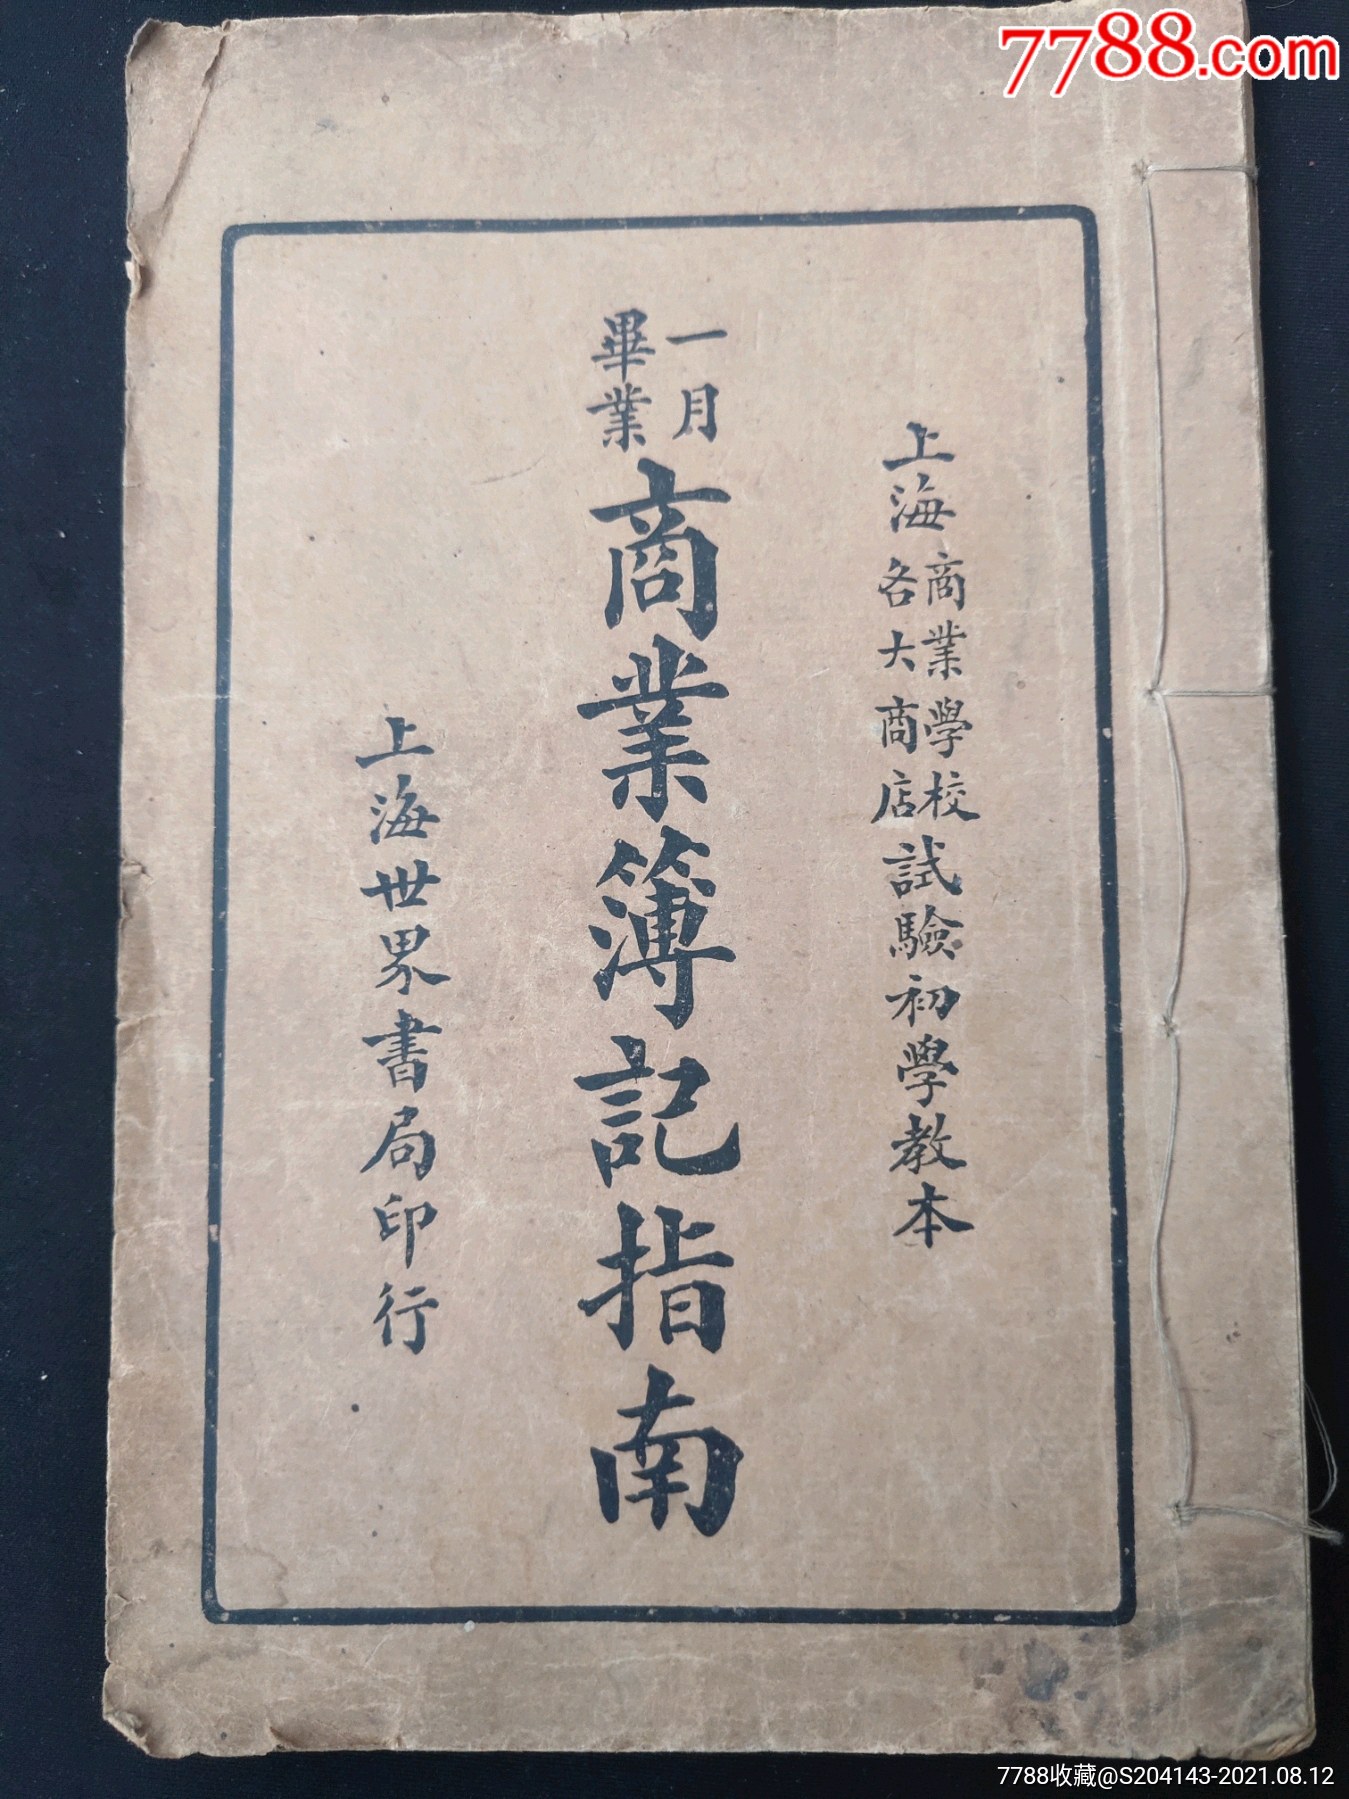 7788.com
上海商業學校各大商店試驗初學教本
一月
畢業
商業簿記指南
上海世界書局印行
7788收藏@S204143-2021.08.12